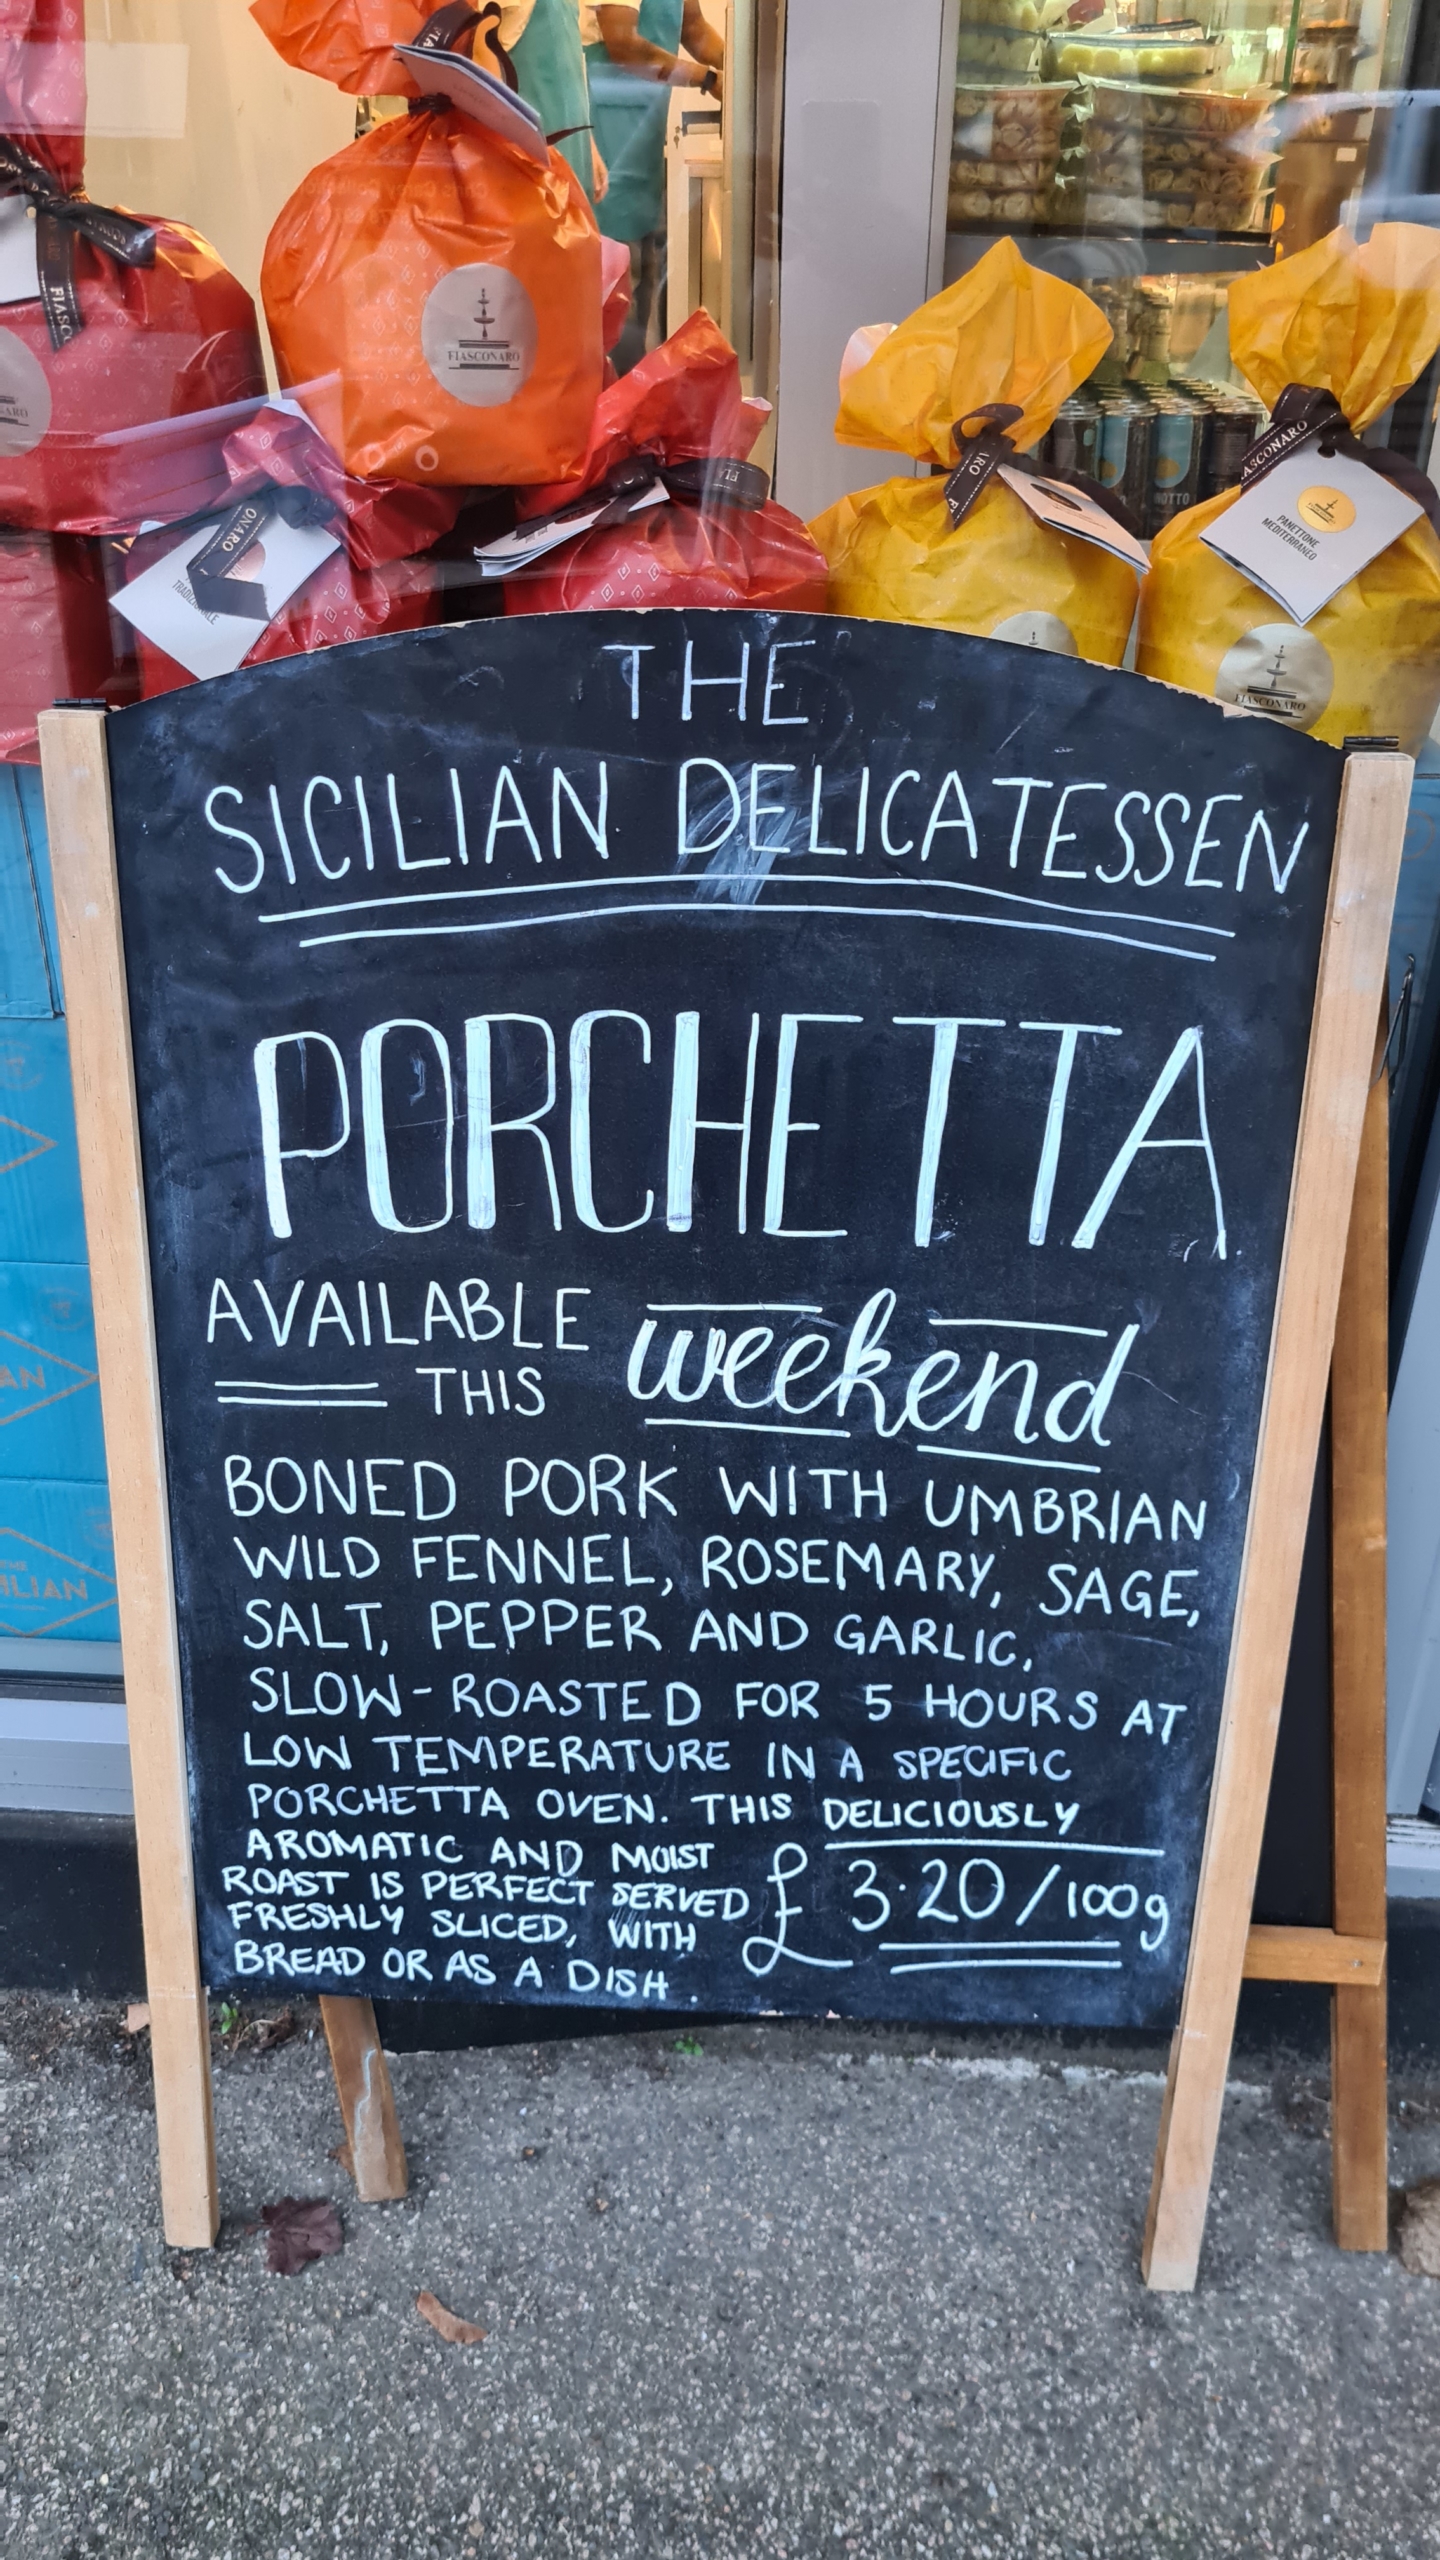 FIASCONARO
FIASC
ONARO
FIASCONARO
IRO
ASCONARO
PANETTONE
MEDITERRANEO
FIASCONARO
THE
SICILIAN DELICATESSEN
PORCHETTA
AVAILABLE weekend
THIS
BONED PORK WITH UMBRIAN
WILD FENNEL, ROSEMARY, SAGE,
SALT, PEPPER AND GARLIC,
SLOW-ROASTED FOR 5 HOURS AT
LOW TEMPERATURE IN A SPECIFIC
PORCHETTA OVEN. THIS DELICIOUSLY
AROMATIC AND MOIST
ROAST IS PERFECT SERVED
FRESHLY SLICED, WITH
BREAD OR AS A DISH.
£3.20/100g
AN
THE
ILIAN